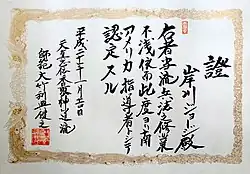 證
岸川ジョージ殿
右者當流兵法之修業
不浅候而此度ヨリ南
アメリカ指導者トシテ
認定スル
平成二十二年一月吉日
天真正伝香取神道流
師範 大竹利典